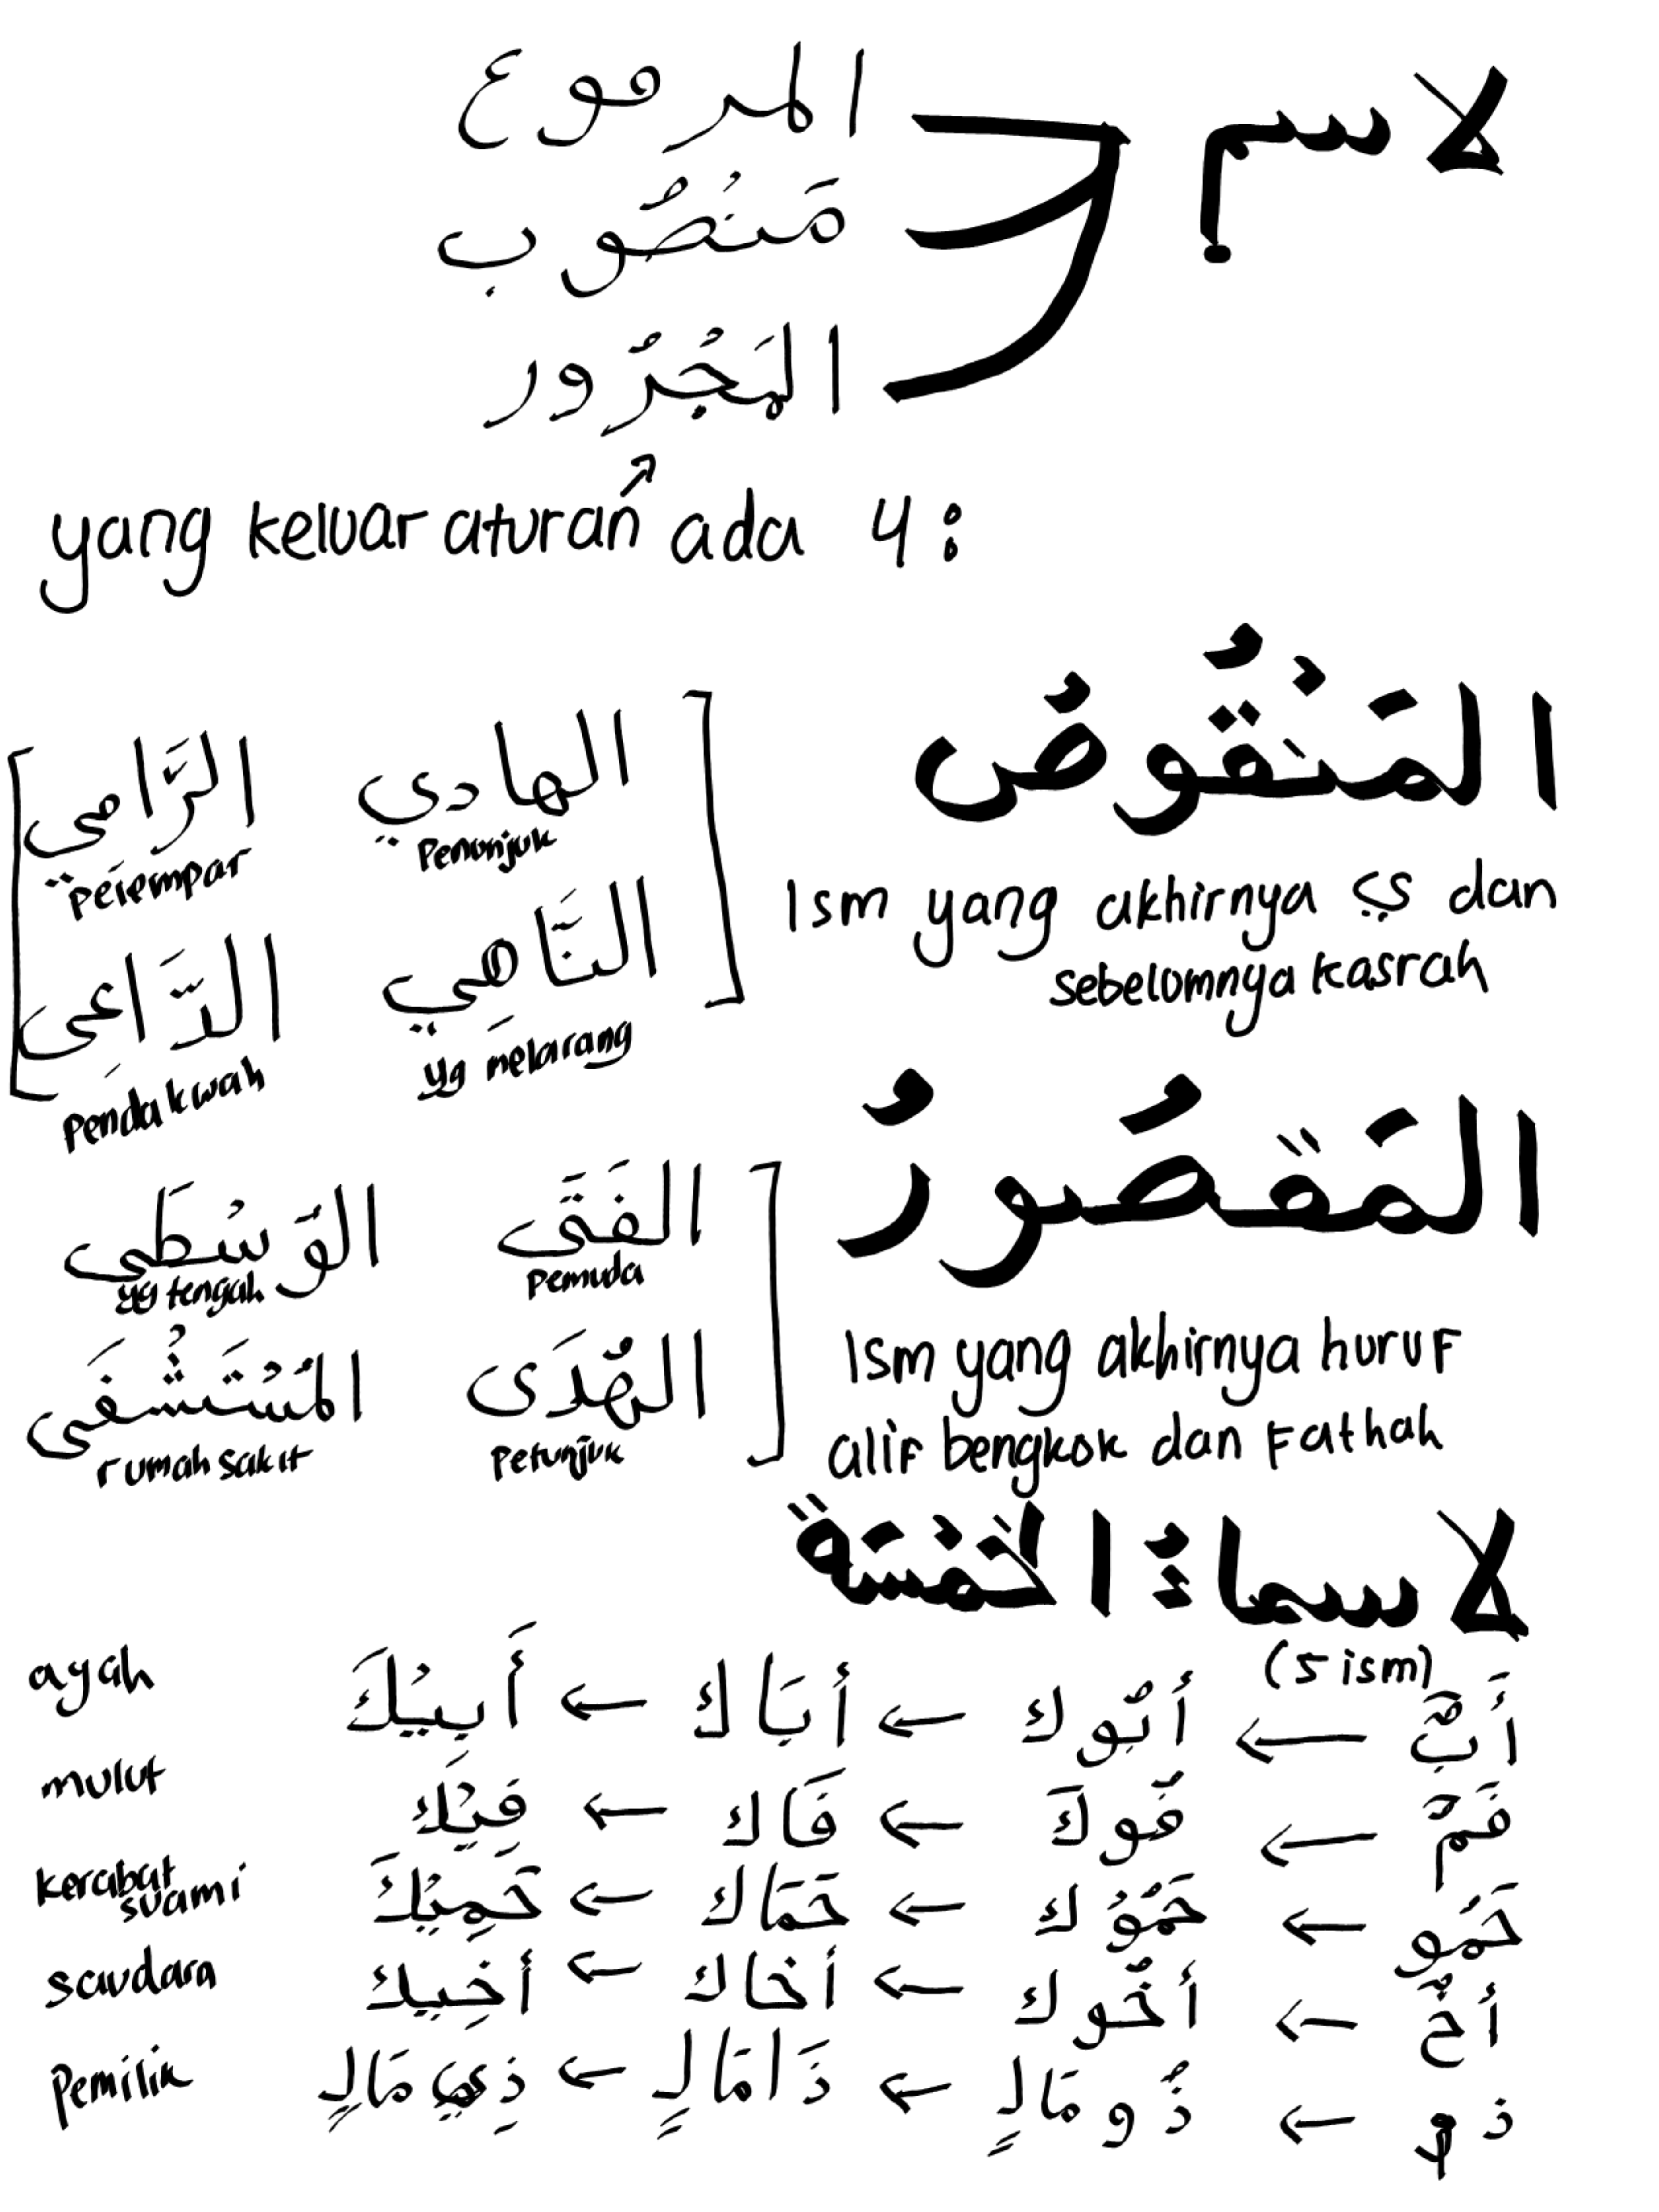 لاسم
المرفوع
مَنصُوب
المَجْرُور
yang keluar aturan ada 4 :
المَنْقُوصُ
Ism yang akhirnya ي dan
sebelomnya kasrah
الهادي
Penunjuk
الرَّامي
pelempar
النَّاهِي
yg melarang
الدَّاعِي
pendakwah
المَقصُورُ
Ism yang akhirnya huruf
alif bengkok dan Fathah
الفَتَى
pemuda
الوَسُطَى
yg tengah
الهُدَى
Petunjuk
المُسْتَشْفَى
rumah sakit
لاسماءُ الخَمْسَة
(5 ism)
أَبٌ ← أبُوك ← أبَاك ← أَبِيْكَ ayah
فَمٌ ← فُوكَ ← فَاك ← فِيْكَ mulut
حَمُو ← حَمُوْك ← حَمَاك ← حَمِيْكَ kerabat suami
أخٌ ← أخُوك ← أخاك ← أخِيك saudara
ذو ← ذُومَالٍ ← ذَامَالٍ ← ذِي مَالٍ Pemilik